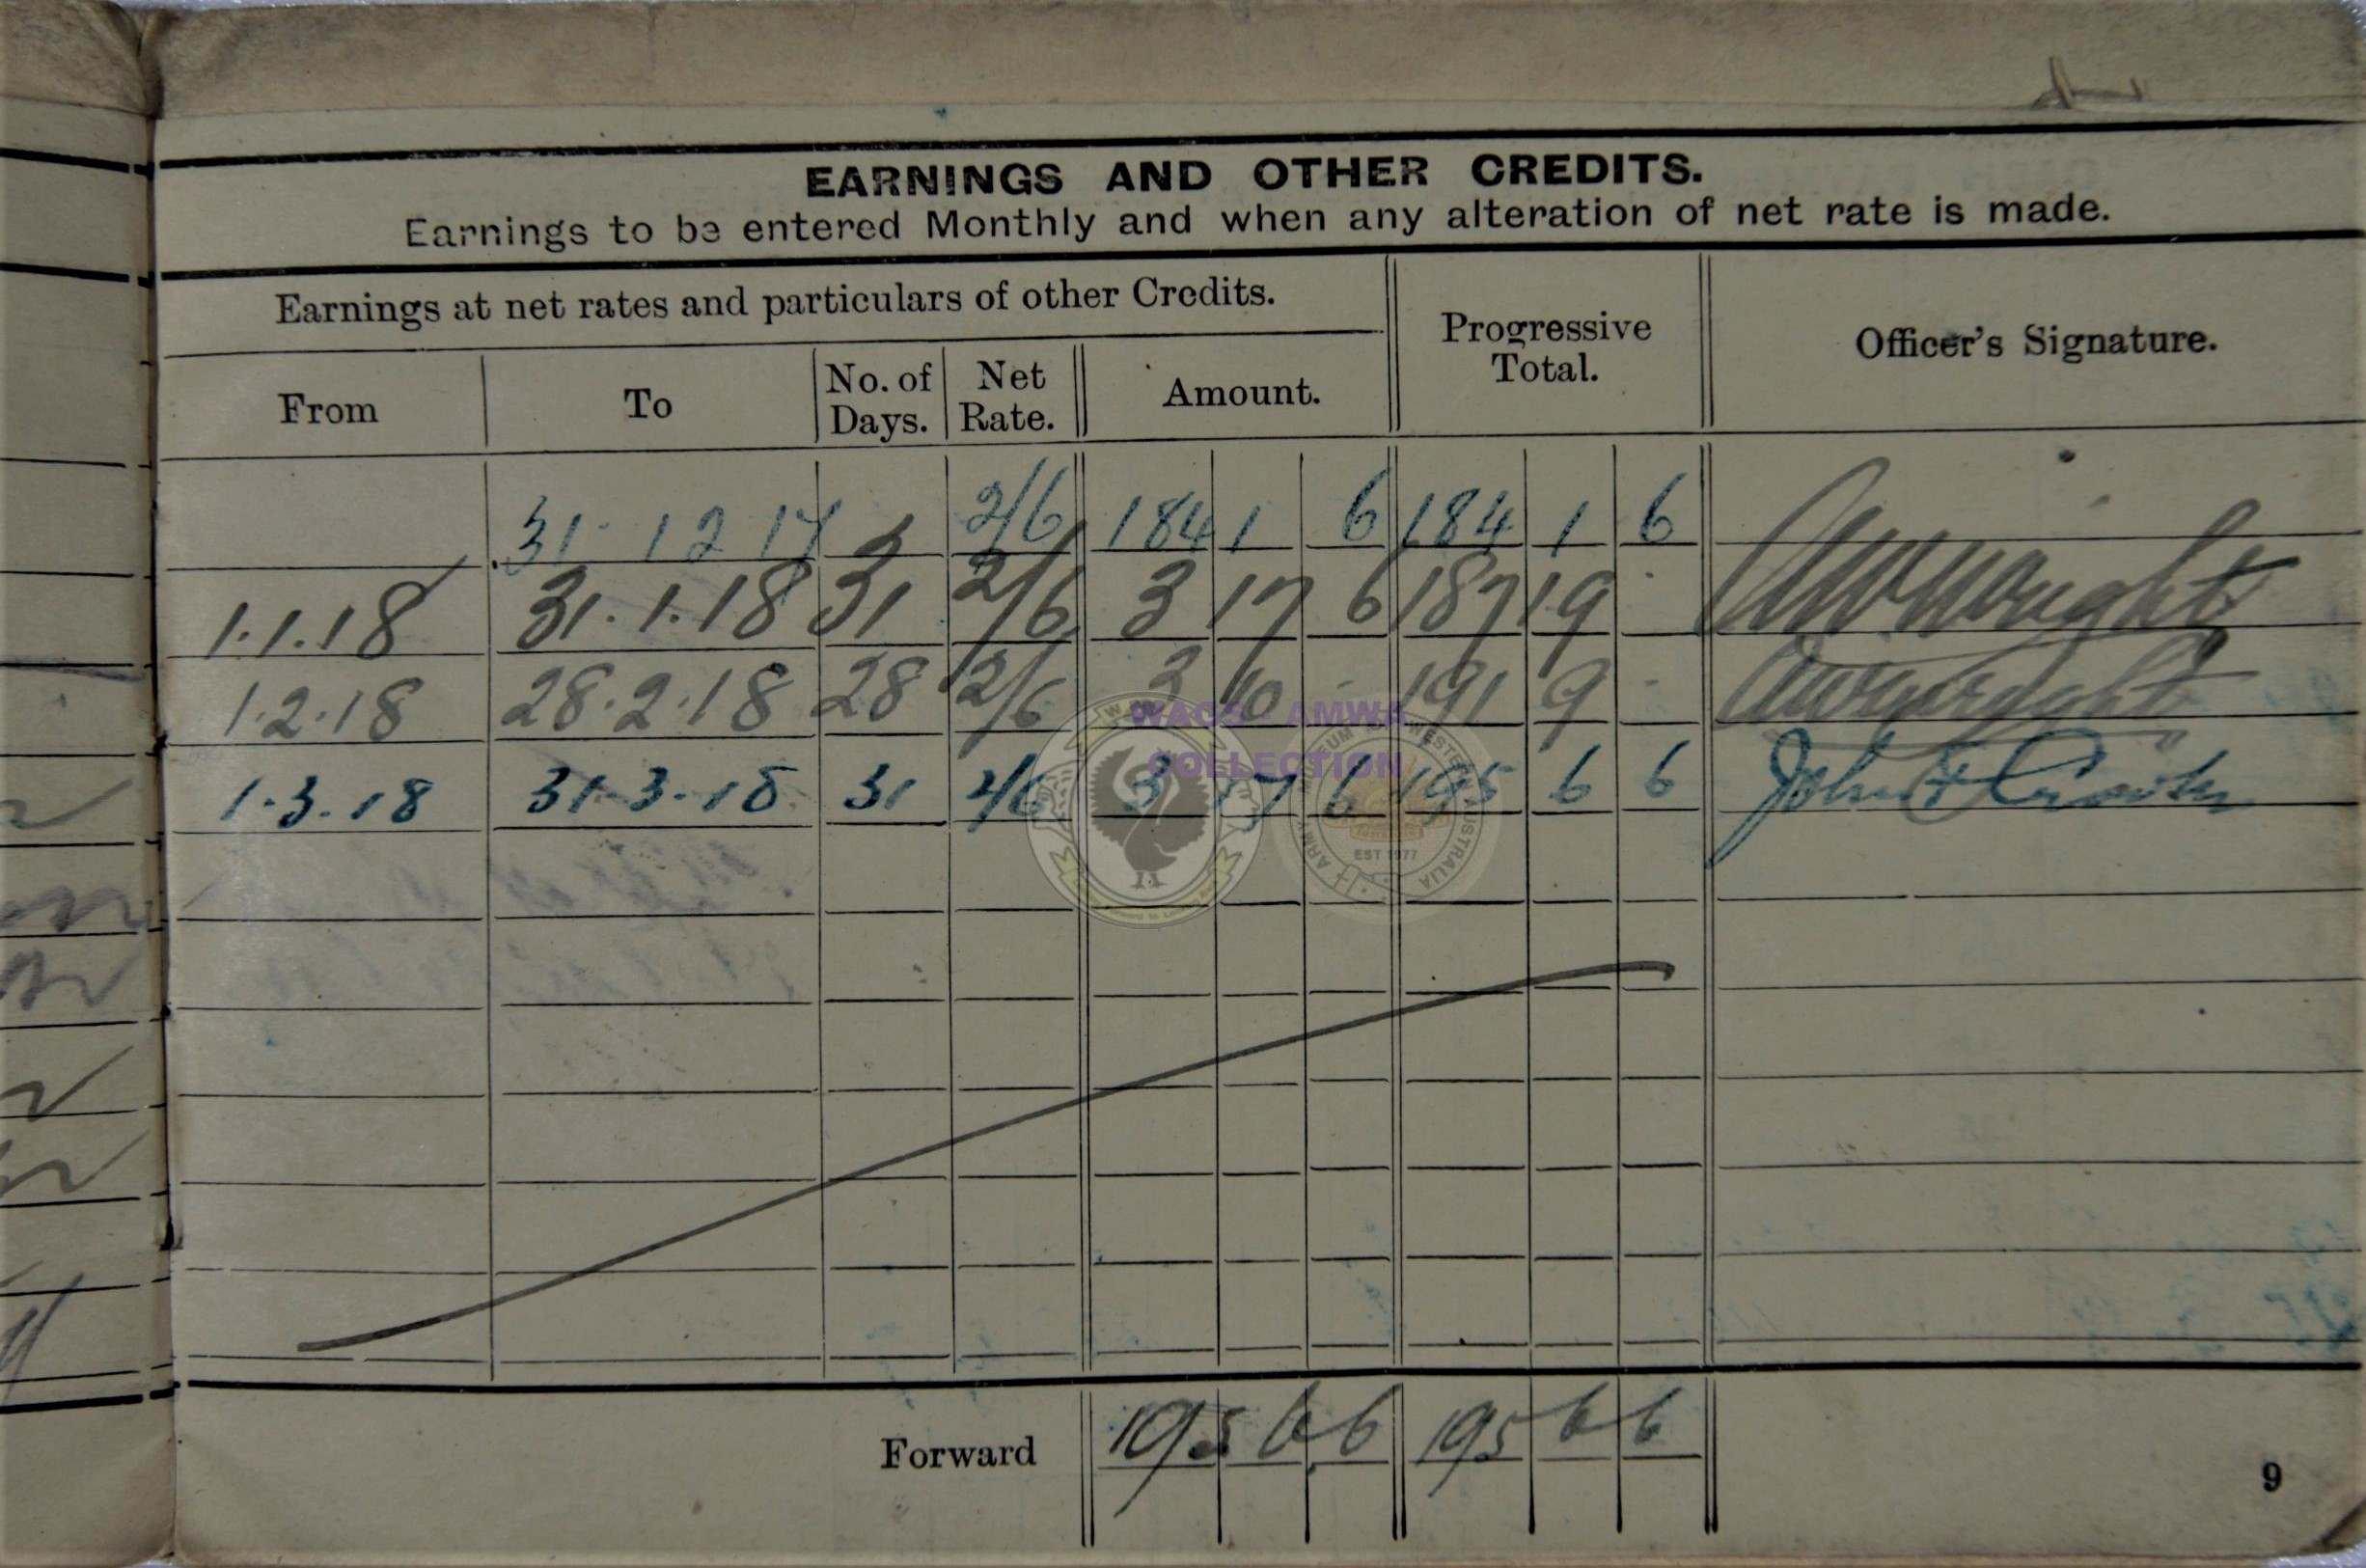 EARNINGS AND OTHER CREDITS.
Earnings to be entered Monthly and when any alteration of net rate is made.
Earnings at net rates and particulars of other Credits.
Progressive Total.
Officer's Signature.
From To No. of Days. Net Rate. Amount.
31 12 17 2/6 184 1 6 184 1 6
1.1.18 31.1.18 31 2/6 3 17 6 187 19 - AWWright
1.2.18 28.2.18 28 2/6 3 10 - 191 9 -
1.3.18 31.3.18 31 2/6 3 17 6 195 6 6 John
WAGS AMWA
COLLECTION
EST 1977
Forward 195 6 6 195 6 6
9